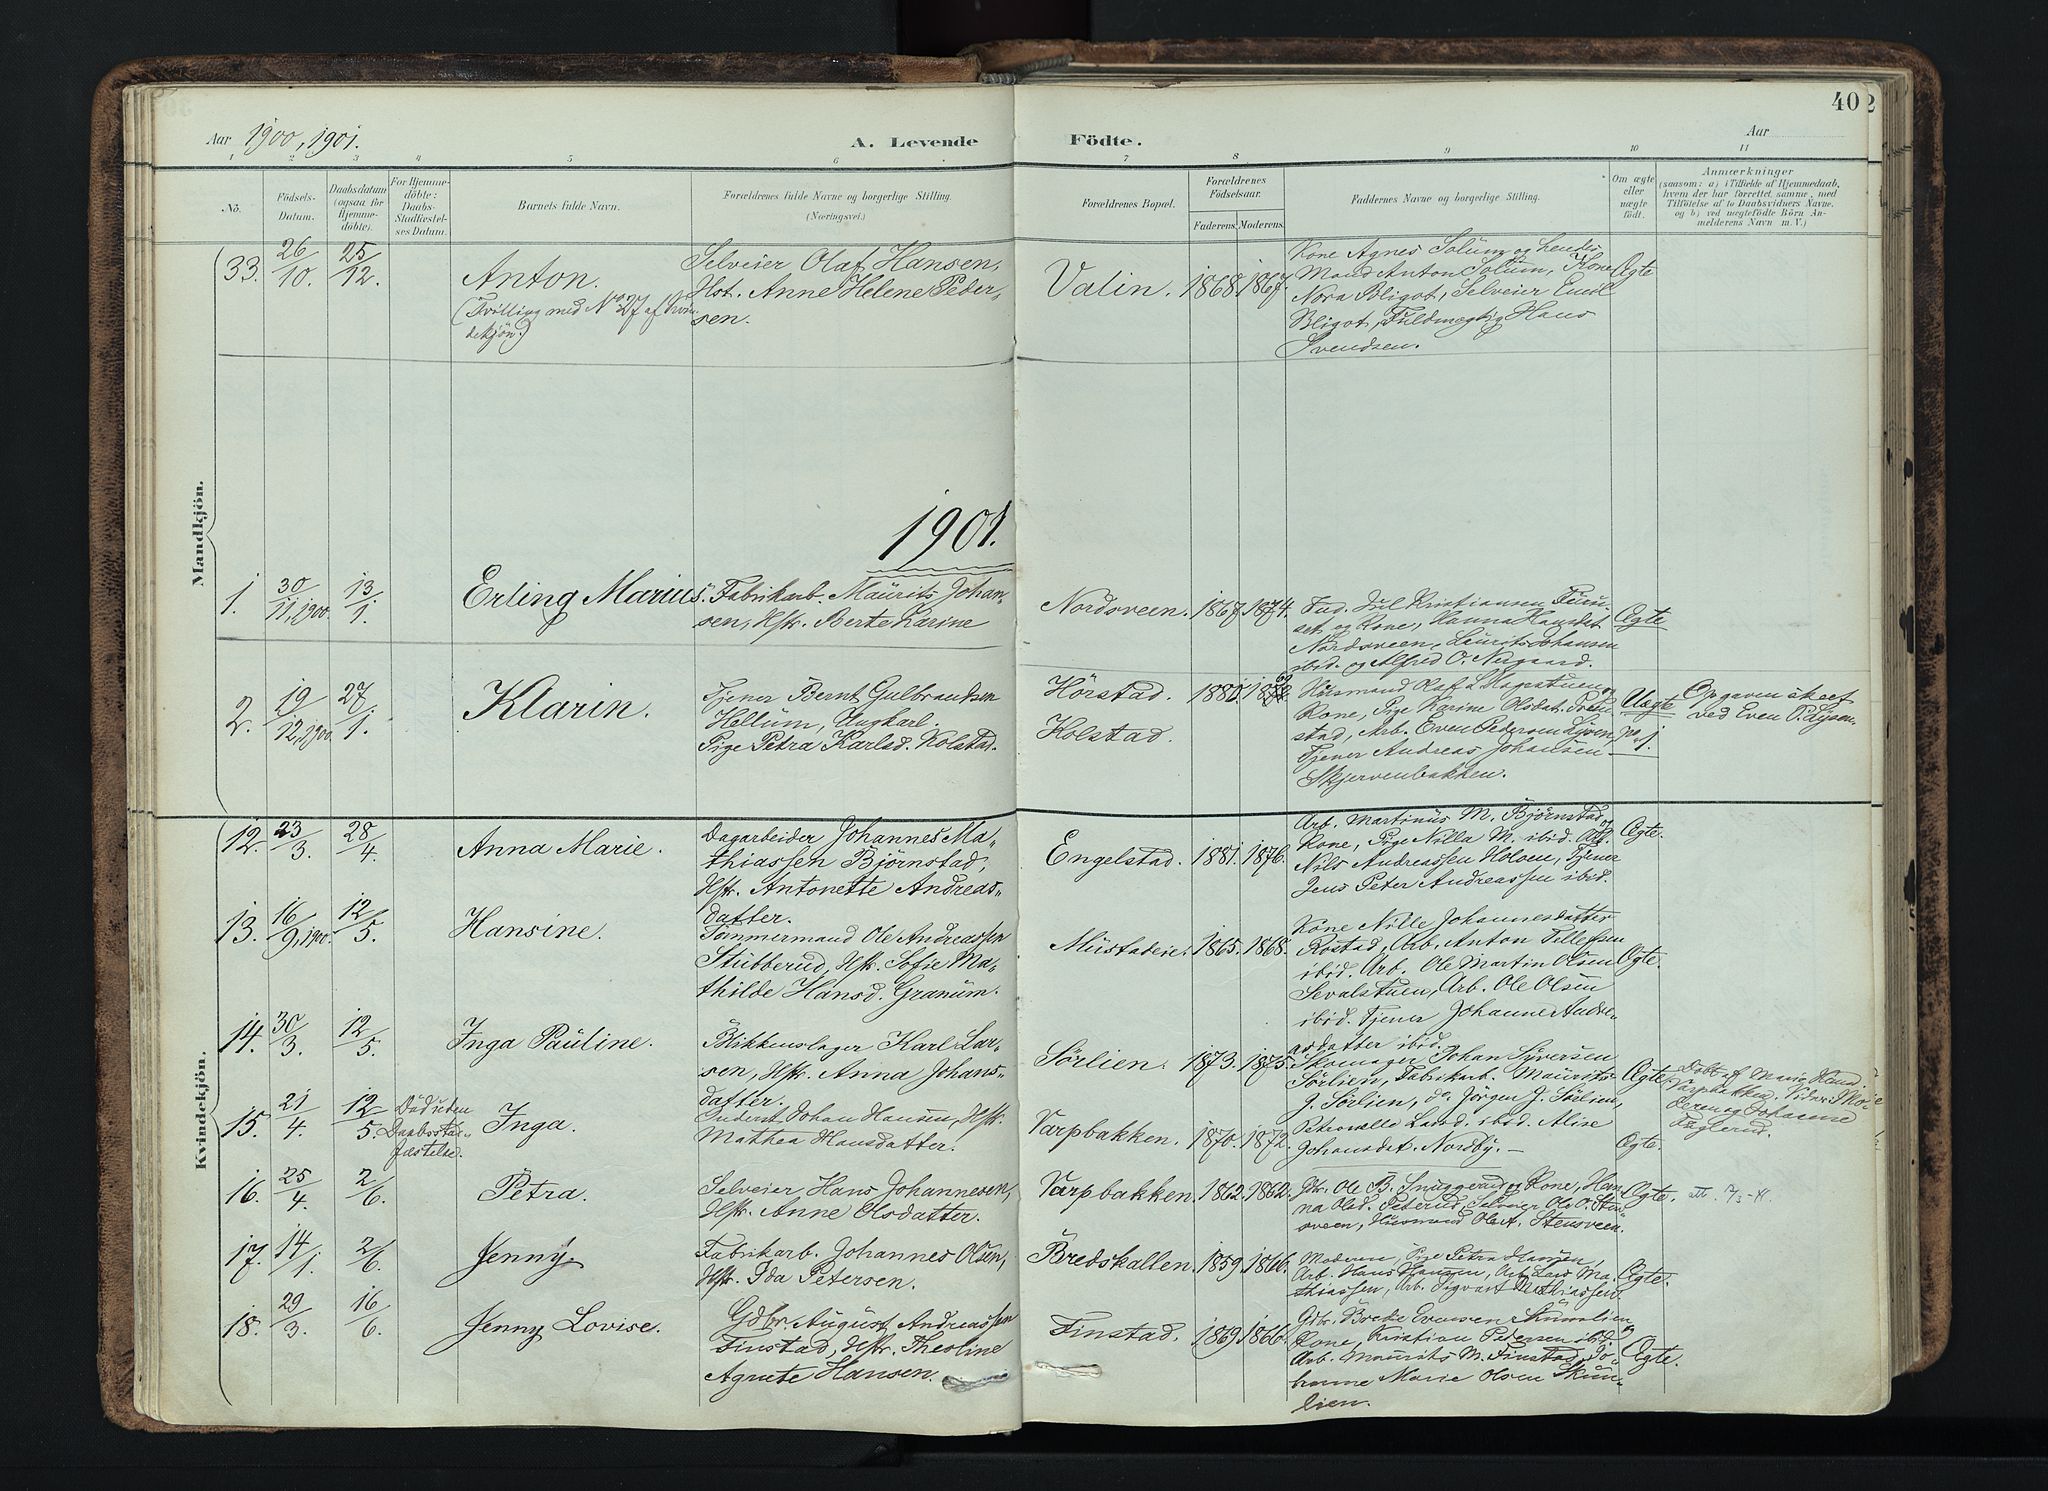 40
Aar 1900, 1901.
A. Levende Födte.
Aar
1 2 3 4 5 6 7 8 9 10 11
No.
Födsels-Datum.
Daabsdatum (ogsaa for Hjemmedöbte).
For Hjemmedöbte: Daabs-Stadfæstelses Datum.
Barnets fulde Navn.
Forældrenes fulde Navne og borgerlige Stilling. (Næringsvei.)
Forældrenes Bopæl.
Forældrenes Födselsaar.
Faderens. Moderens.
Faddernes Navne og borgerlige Stilling.
Om ægte eller uægte födt.
Anmærkninger
(saasom: a) i Tilfælde af Hjemmedaab, hvem der har forrettet samme, med Tilföielse af to Daabsvidners Navne. og b) ved uægtefödte Börn Anmelderens Navn m. V.)
Mandkjön.
33. 26/10. 25/12. Anton. (Tvilling med No 27 af Kvindekjön.)
Selveier Olaf Hansen, Hst. Anne Helene Pedersen.
Valin. 1868. 1867.
Kone Agnes Solum og hendes
Mand Anton Solum, Kone
Nora Bligot, Selveier Emil
Bligot, Fuldmægtig Hans
Svendsen.
Ægte
1901.
1. 30/11, 1900. 13/1. Erling Marius.
Fabrikarb. Maurits Johansen, Hstr. Berte Karine
Nordsveen. 1867. 1874.
Kristiansen
og Kone, Hanna Hansdet.
Nordsveen, Laurits Johansen
ibid. og Alfred O. Nergaard.
Ægte
2. 19/12, 1900. 27/1. Klarin.
Tjener Bernt Gulbrandsen
Hellum, Ungkarl.
Pige Petra Karlsd. Kolstad.
Hörstad.
Kolstad.
Husmand Olaf
Kone, Pige Karine Olsdat.
stad, Arb. Even Pedersen
Tjener Andreas Johansen
Skjervenbakken.
Uægte
Opgaven skeet
ved Even P.
Kvindekjön.
12. 23/3. 28/4. Anna Marie.
Dagarbeider Johannes Ma-
thiassen Björnstad,
Hstr. Antonette Andreas-
datter.
Engelstad. 1881. 1876.
Arb. Martinus M. Björnstad og
Kone, Pige Nilla M. ibid.
Nils Andreassen Holven, Tjener
Jens Peter Andreassen ibid.
Ægte.
13. 16/9, 1900. 12/5. Hansine.
Tömmermand Ole Andreassen
Stubberud, Hstr. Sofie Ma-
thilde Hansd. Granum.
Mustadeie. 1865. 1868.
Kone Nille Johannesdatter
Rostad, Arb. Anton Tillefsen
ibid. Arb. Ole Martin Olsen
Sevalstuen, Arb. Ole Olsen
ibid. Tjener Johanne Andre-
asdatter ibid.
Ægte.
14. 30/3. 12/5. Inga Pauline.
Blikkenslager Karl Lar-
sen, Hstr. Anna Johans-
datter.
Sörlien. 1873. 1875.
Skomager Johan Syversen
Sörlien, Fabrikarb. Maurits
J. Sörlien, do. Jörgen J. Sörlien,
Petronelle Larsd. ibid. Alise
Johansdat. Nordby. —
Ægte.
15. 21/4. 12/5. Död uden Daabsstadfæstelse. Inga.
Inderst Johan Hansen, Hstr.
Mathea Hansdatter.
Varpbakken. 1870. 1872.
Ægte.
Döbt af Marie
Varpbakken.
og Johanne
Fuglerud.
16. 25/4. 2/6. Petra.
Selveier Hans Johannesen,
Hstr. Anne Olsdatter.
Varpbakken. 1862. 1862.
Gbr. Ole B. Snuggerud og Kone, Han-
na Olsd. Peterud, Selveier Ole O. Sten-
sveen, Husmand Ole A. Stensveen.
Ægte.
17. 14/1. 2/6. Jenny.
Fabrikarb. Johannes Olsen,
Hstr. Ida Petersen.
Bredskallen. 1859. 1866.
Moderen, Pige Petra Hansen,
Arb. Hans Hansen, Arb. Lars Ma-
thiassen, Arb. Sigvart Mathiassen.
Ægte.
18. 29/3. 16/6. Jenny Lovise.
Gdbr. August Andreassen
Finstad, Hstr. Theoline
Agnete Hansen.
Finstad. 1869. 1866.
Gdbr. Brede Evensen Skumlien og
Kone, Kristian Pedersen ibid.
Arb. Maurits M. Finstad, Jo-
hanne Marie Olsen Skum-
lien.
Ægte.